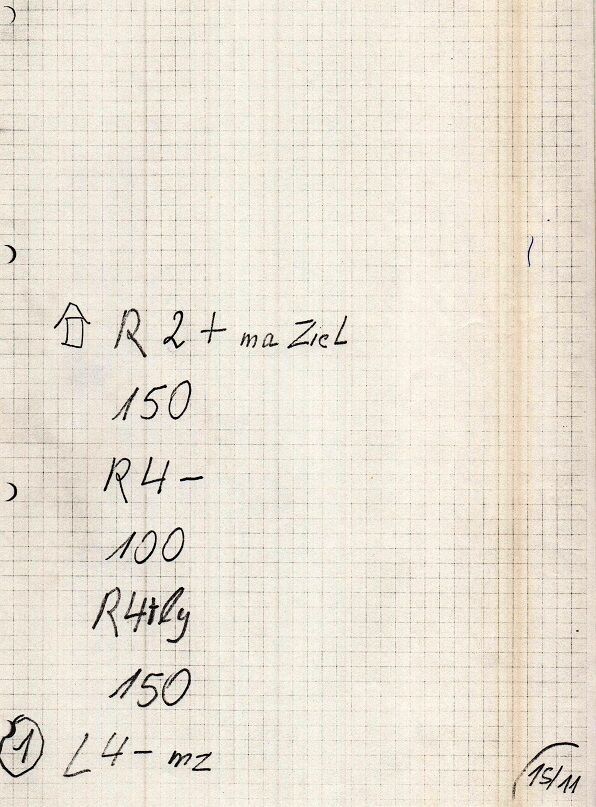 R 2 + ma Ziel
150
R 4 -
100
R4+ly
150
1 L 4 - mz
15/11